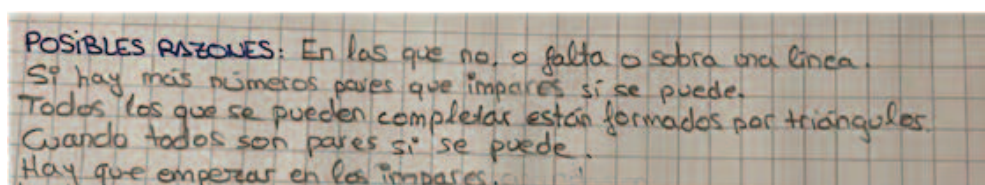 POSIBLES RAZONES: En las que no, o falta o sobra una línea.
Si hay más números pares que impares sí se puede.
Todos los que se pueden completar están formados por triángulos.
Cuando todos son pares si se puede.
Hay que empezar en los impares.